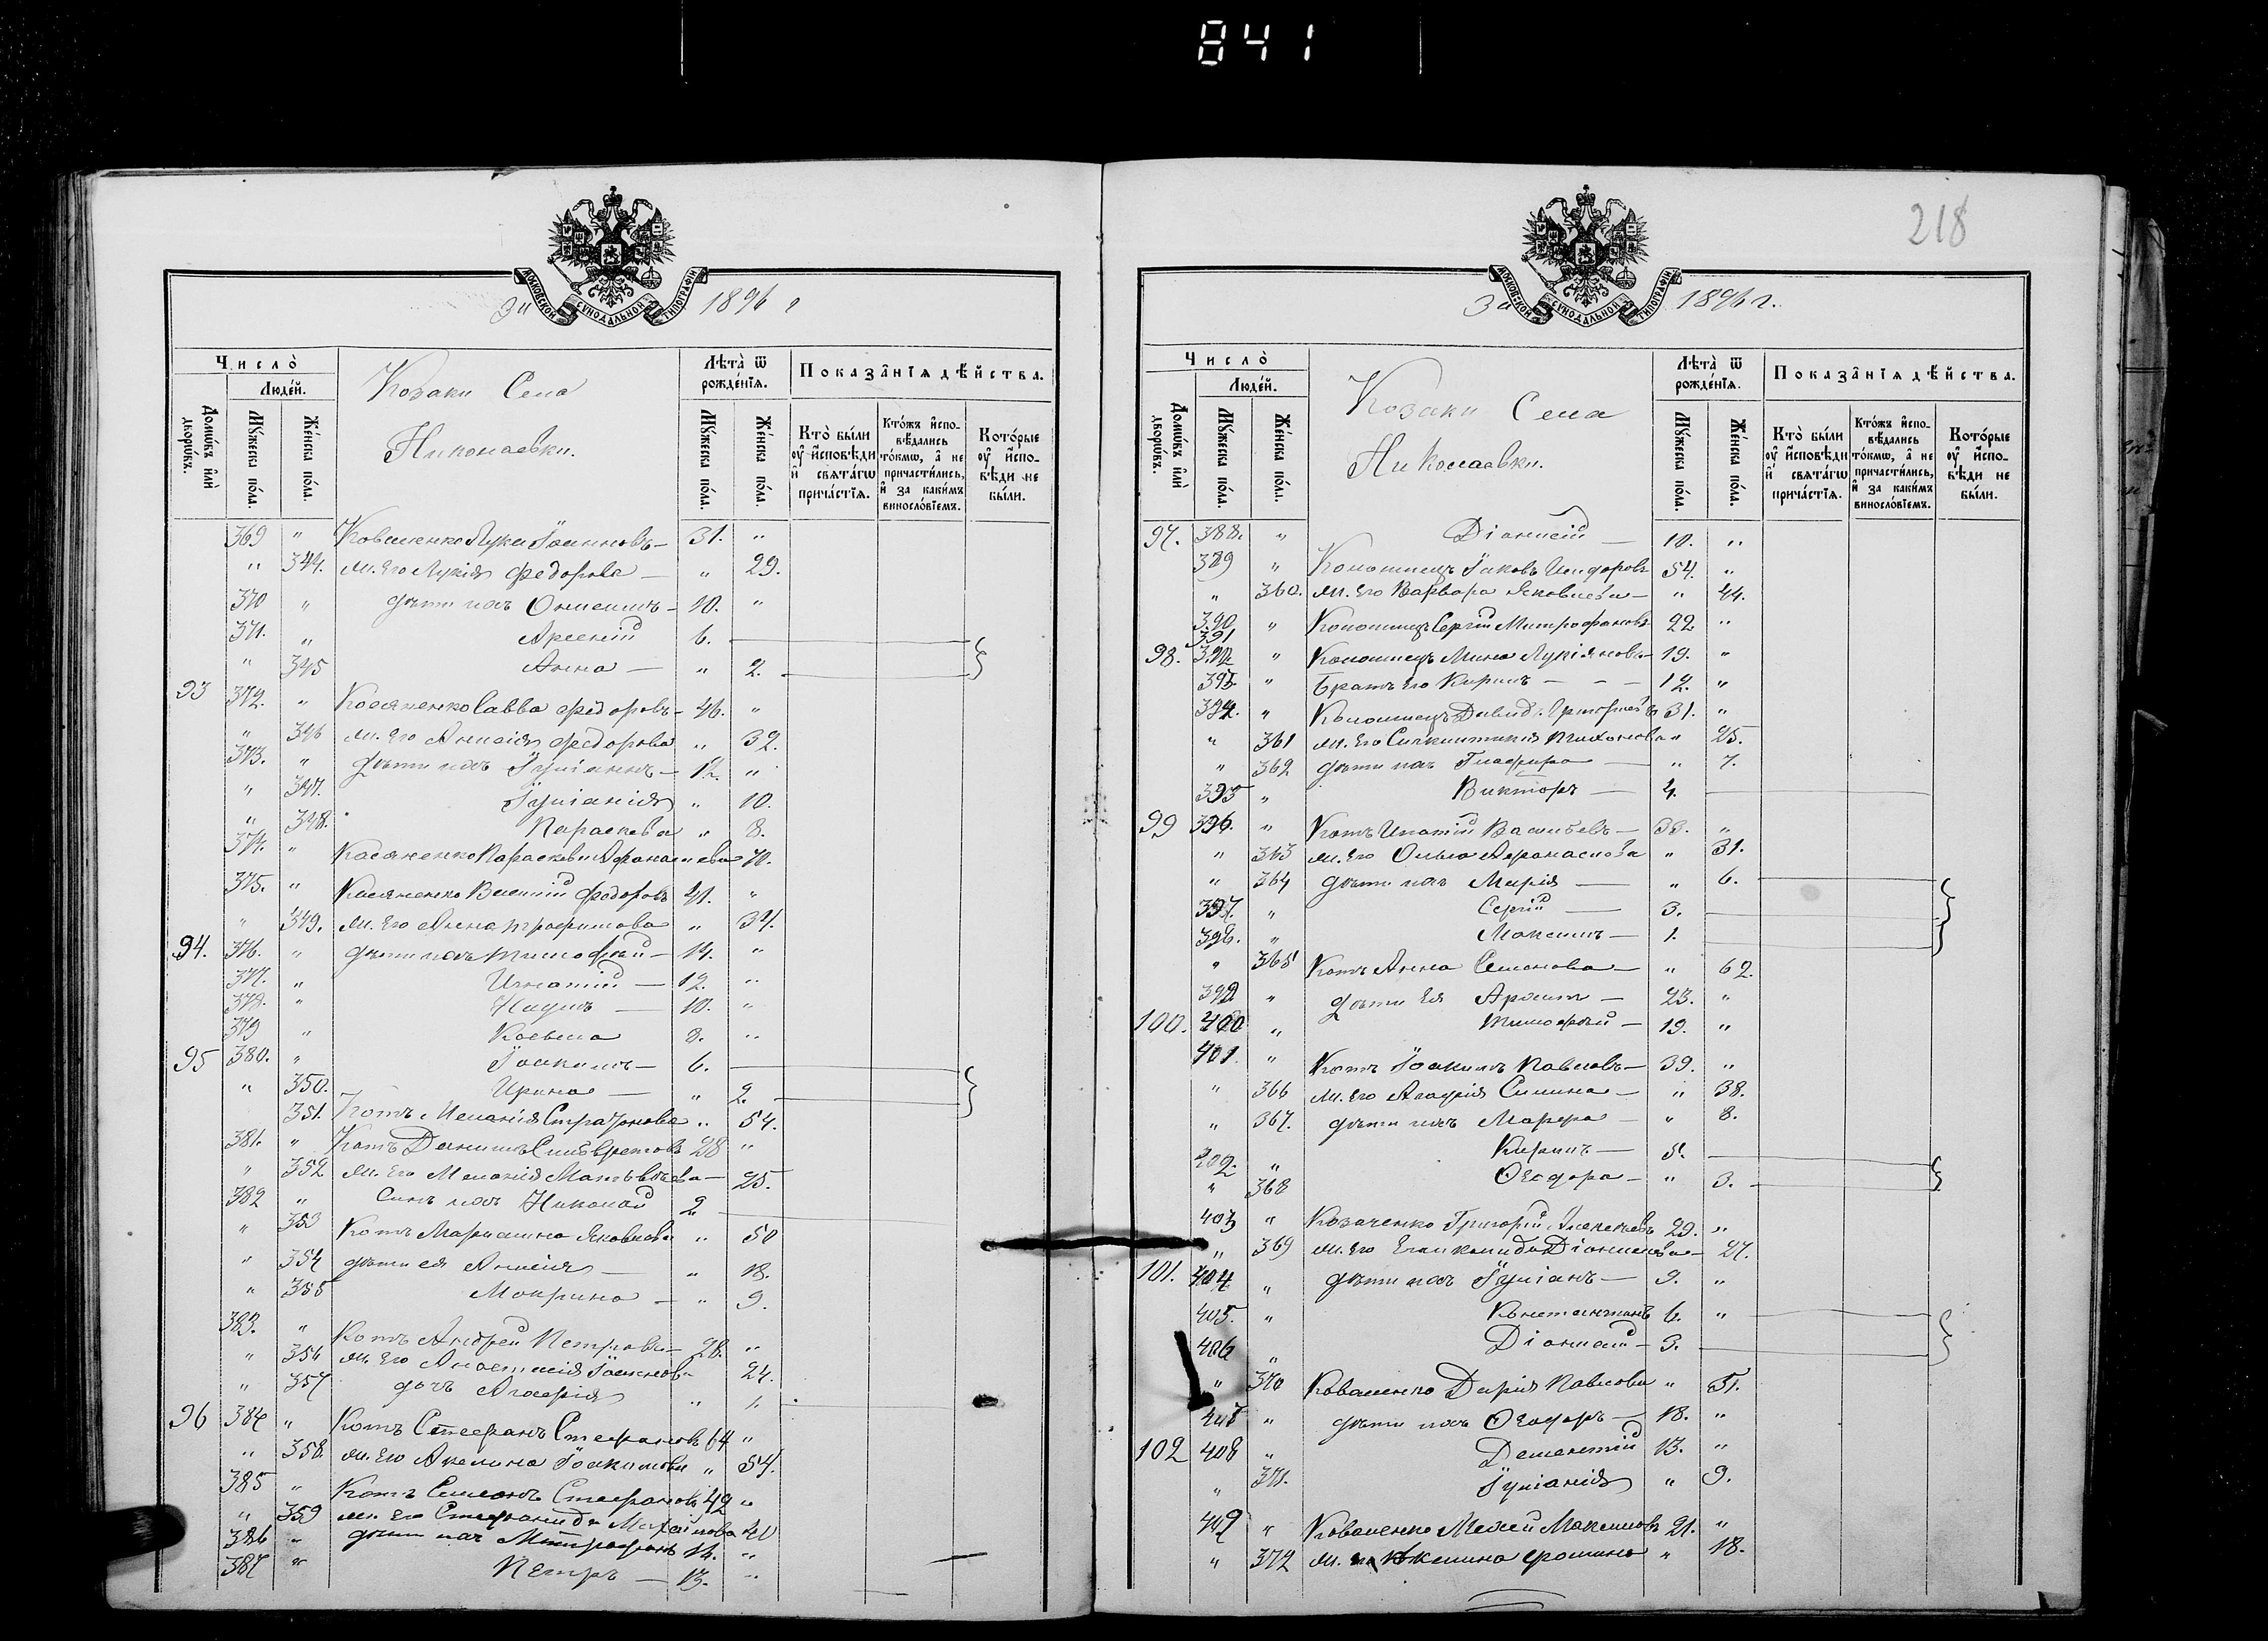 841
МОСКОВСКОЙ СѴНОДАЛЬНОЙ ТИПОГРАФІИ
За 1896 г
Число̀
Людéй.
Домѡ́въ и҆лѝ дворѡ́въ.
Мꙋ́жеска пóла.
Жéнска пóла.
Козаки Села
Николаевки.
Лѣ́та ѿ рождéнїѧ.
Мꙋ́жеска пóла.
Жéнска пóла.
Показа̑нїѧ дѣ́йства.
Кто̀ бы́ли ᲂу҆ и҆сповѣ́ди и҆ свѧта́гѡ прича́стїѧ.
Кто́жъ и҆спо-вѣ́дались то́кмѡ, а҆ не причасти́лись, и҆ за каки́мъ винослóвїемъ.
Котóрые ᲂу҆ и҆спо-вѣ́ди не бы́ли.
369 " Коваленко Лука Іоанновъ — 31. "
" 344. ж. Его Лукія Федорова — " 29.
370 " дѣти ихъ Онисимъ — 10. "
371. " Арсеній 6.
" 345 Анна — " 2.
93 372. " Косяненко Савва Федоровъ — 46. "
" 346 ж. Его Анисія Федорова " 32.
373. " дѣти ихъ Іуліанъ — 12. "
" 347. Іуліанія " 10.
" 348. Параскева " 8.
374. " Касяненко Параскеви Афанасиева 70.
375. " Касяненко Василій Федоровъ 41. "
" 349. ж. Его Анна Трофимова " 34.
94. 376. " дѣти ихъ Тимофей — 14. "
377. " Игнатій — 12. "
378. " Наумъ — 10. "
379 " Косьма 8. "
95 380. " Іоакимъ — 6.
" 350. Ирина — " 2.
351. Котъ Меланія " 54.
381. " Котъ Даніилъ 28 "
" 352 ж. Его Меланія Матвѣева — 25.
382 " Сынъ ихъ Николай 2
" 353 Котъ Маріамна Яковлева " 50
" 354 дѣти ея Анисія — " 18.
" 355 Макрина — " 9.
383. " Котъ Андрей Петровъ — 28. "
" 356 ж. Его Анастасія Іоаннова 24.
" 357 дочь Агафія " 1.
96 384 " Котъ Стефанъ Стефановъ 64 "
" 358. ж. Его Акилина Іоакимова " 54.
385 " Котъ Симеонъ Стефановъ 42 "
" 359 ж. Его Стефанида Михайлова 40
386 " дѣти ихъ Митрофанъ 14. "
387 " Петръ — 13. "
218
МОСКОВСКОЙ СѴНОДАЛЬНОЙ ТИПОГРАФІИ
За 1896 г.
Число̀
Людéй.
Домѡ́въ и҆лѝ дворѡ́въ.
Мꙋ́жеска пóла.
Жéнска пóла.
Козаки Села
Николаевки.
Лѣ́та ѿ рождéнїѧ.
Мꙋ́жеска пóла.
Жéнска пóла.
Показа̑нїѧ дѣ́йства.
Кто̀ бы́ли ᲂу҆ и҆сповѣ́ди и҆ свѧта́гѡ прича́стїѧ.
Кто́жъ и҆спо-вѣ́дались то́кмѡ, а҆ не причасти́лись, и҆ за каки́мъ винослóвїемъ.
Котóрые ᲂу҆ и҆спо-вѣ́ди не бы́ли.
97. 388. " Діонисій — 10. "
389 " Коломиецъ Іаковъ Исидоровъ 54. "
" 360. ж. Его Варвара Яковлева — " 44.
390 " Коломиецъ Сергій Митрофановъ 22 "
391
98. 392 " Коломиецъ Мина Лукіяновъ — 19. "
393. " Братъ Его Кирилъ — — — 12. "
394. " Коломиецъ Давидъ 31. "
" 361 ж. Его Тихонова " 25.
" 362 дѣти ихъ Глафира — " 7.
395 " Викторъ — 4.
99 396. " Котъ Игнатій Васильевъ — 38. "
" 363 ж. Его Ольга Афанасиева " 31.
" 364 дѣти ихъ Марія — " 6.
397. " Сергій — 3.
398. " Максимъ — 1.
" 365 Котъ Анна Семенова — " 62.
399 " дѣти Ея — 23. "
100. 400 " Тимофей — 19. "
401. " Котъ Іоакимъ Павловъ — 39. "
" 366 ж. Его Агафія Симина — " 38.
" 367. дѣти ихъ Марфа — " 8.
402. " Кирилъ — 5.
" 368 Ѳеодора — " 3.
403 " Козаченко Григорій Алексѣевъ 29. "
" 369 ж. Его Діонисіева — 27.
101. 404 " дѣти ихъ Іуліанъ — 9. "
405. " Константинъ 6. "
406 " Діонисій — 3.
" 370 Коваленко Дарія Павлова " 51.
407 " дѣти ихъ Ѳеодоръ — 18. "
102 408 " Дементій 13. "
" 371. Іуліанія " 9.
409 " Коваленко Максимовъ 21. "
" 372 ж. Его Акилина Фомина " 18.